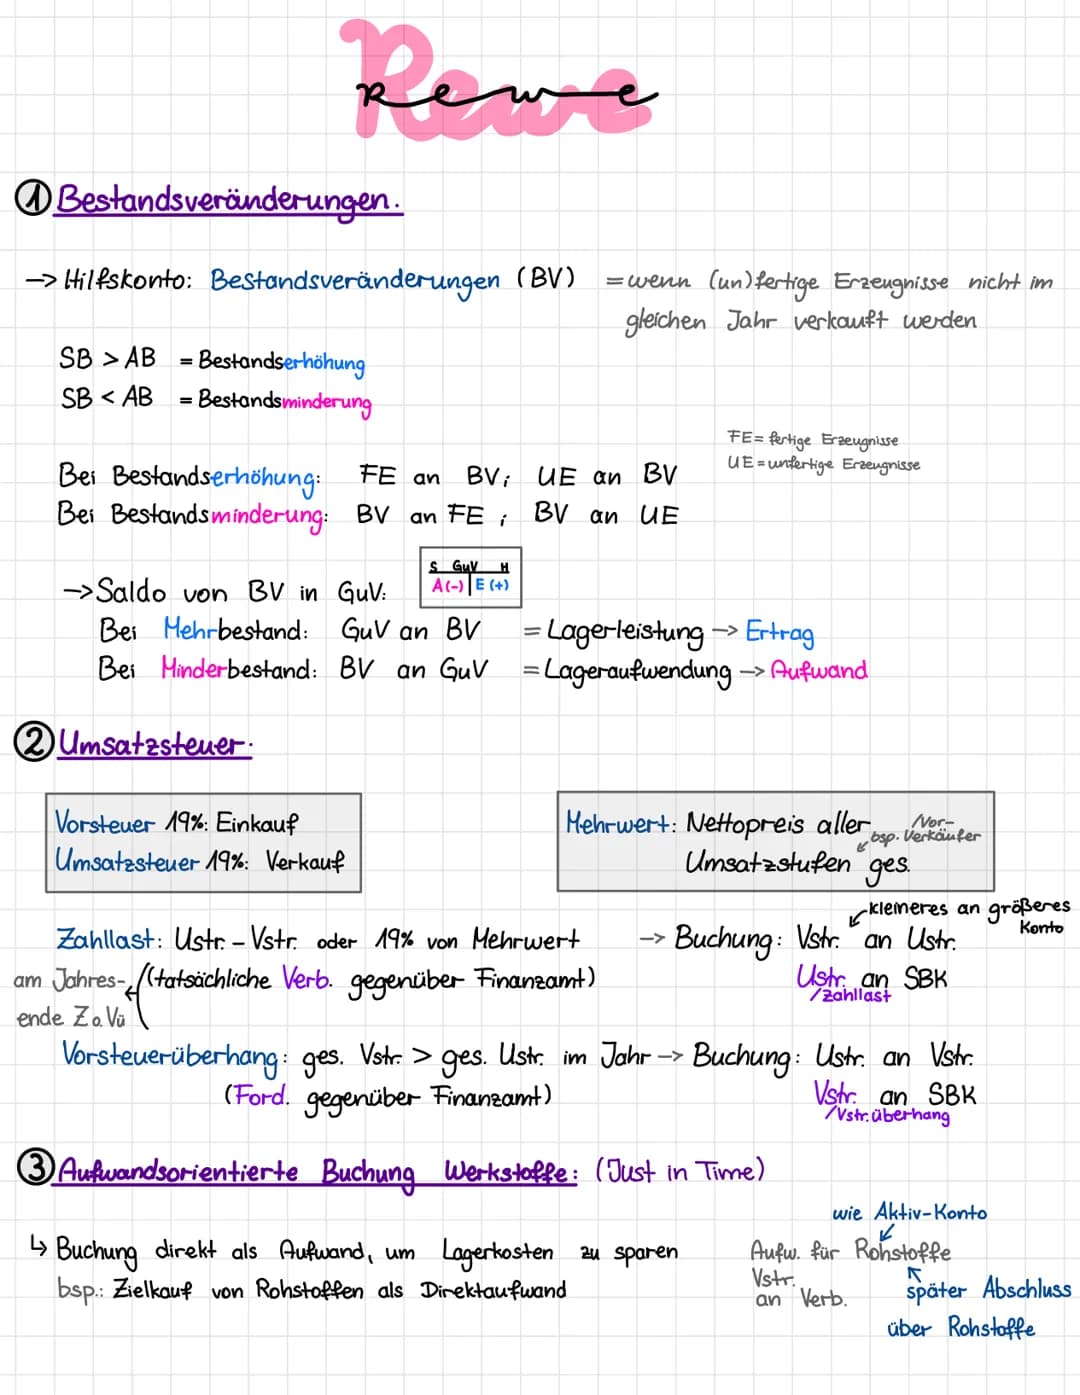 Rewe
① Bestandsveränderungen.
-> Hilfskonto: Bestandsveränderungen (BV) = wenn (un)fertige Erzeugnisse nicht im
gleichen Jahr verkauft werden
SB > AB = Bestandserhöhung
SB < AB = Bestandsminderung
FE = fertige Erzeugnisse
UE = unfertige Erzeugnisse
Bei Bestandserhöhung: FE an BV; UE an BV
Bei Bestandsminderung: BV an FE ; BV an UE
S GuV H
A(-) E (+)
-> Saldo von BV in GuV:
Bei Mehrbestand: GuV an BV = Lagerleistung -> Ertrag
Bei Minderbestand: BV an GuV = Lageraufwendung -> Aufwand
② Umsatzsteuer.
Vorsteuer 19%: Einkauf
Umsatzsteuer 19%: Verkauf
Mehrwert: Nettopreis aller
Umsatzstufen ges.
bsp. Vor-
Verkäufer
kleineres an größeres
Konto
Zahllast: Ustr. - Vstr. oder 19% von Mehrwert -> Buchung: Vstr. an Ustr.
(tatsächliche Verb. gegenüber Finanzamt) Ustr. an SBK
/Zahllast
am Jahres-
ende Z o. Vü
Vorsteuerüberhang: ges. Vstr. > ges. Ustr. im Jahr -> Buchung: Ustr. an Vstr.
(Ford. gegenüber Finanzamt) Vstr. an SBK
/Vstr.überhang
③ Aufwandsorientierte Buchung Werkstoffe: (Just in Time)
↳ Buchung direkt als Aufwand, um Lagerkosten zu sparen
bsp.: Zielkauf von Rohstoffen als Direktaufwand
wie Aktiv-Konto
Aufw. für Rohstoffe
Vstr.
an Verb.
später Abschluss
über Rohstoffe